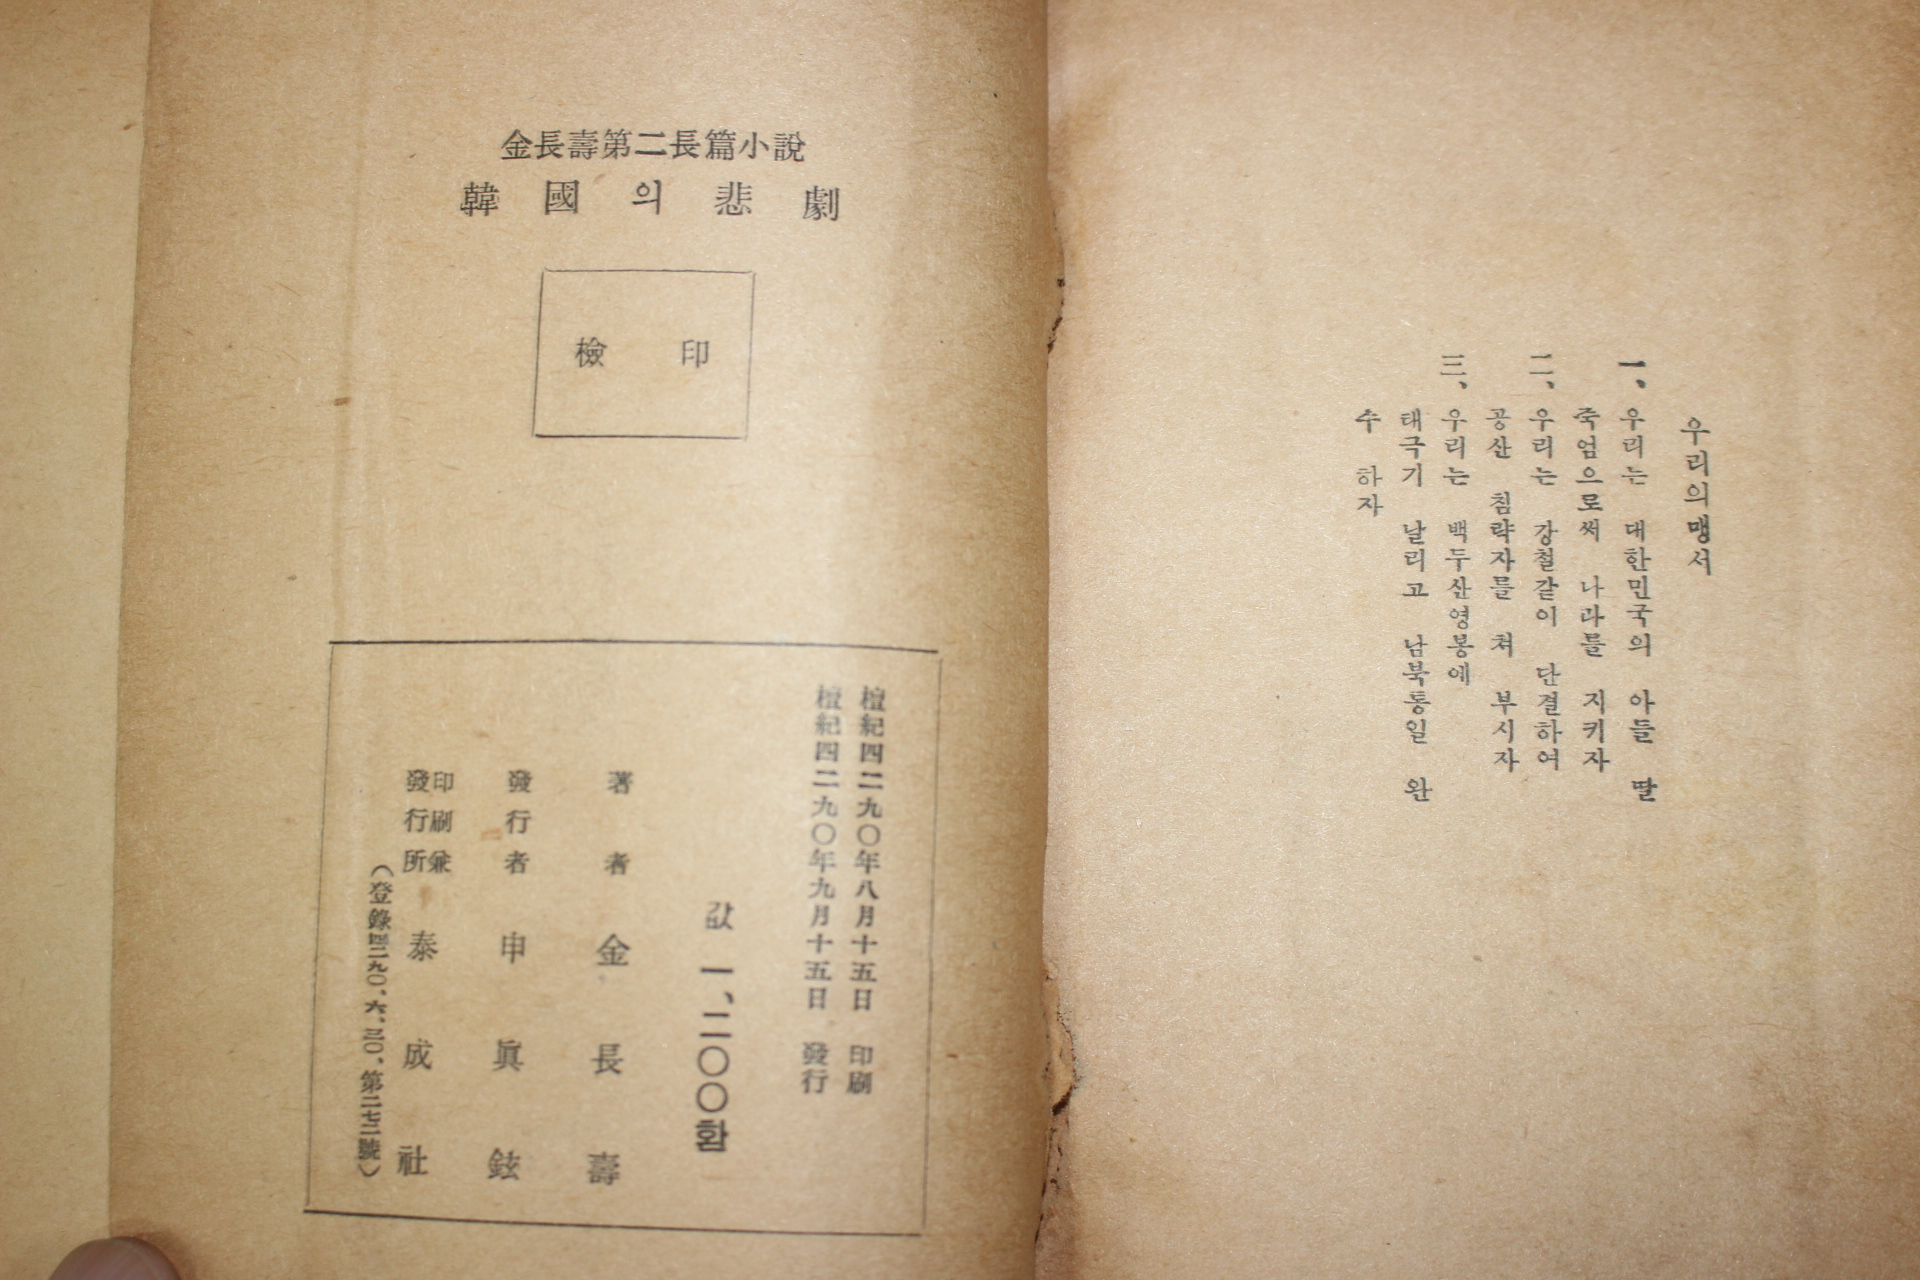 金長壽第二長篇小說
韓國의悲劇
檢印
檀紀四二九〇年八月十五日 印刷
檀紀四二九〇年九月十五日 發行
값 一、二〇〇환
著者 金長壽
發行者 申眞鉉
印刷兼
發行所 泰成社
(登錄四二九〇、六、二〇、第二七二號)
우리의맹서
一、우리는 대한민국의 아들 딸
죽엄으로써 나라를 지키자
二、우리는 강철같이 단결하여
공산 침략자를 처 부시자
三、우리는 백두산영봉에
태극기 날리고 남북통일 완
수 하자